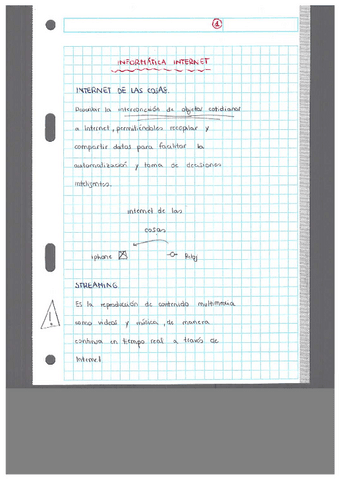 1
INFORMÁTICA INTERNET
INTERNET DE LAS COSAS.
la interconexión de objetos cotidianos
a Internet, permitiéndoles recopilar y
compartir datos para facilitar la
automatización y toma de decisiones
inteligentes.
internet de las
cosas
iphone Reloj
STREAMING
Es la reproducción de contenido multimedia
como videos y música, de manera
continua en tiempo real a través de
Internet